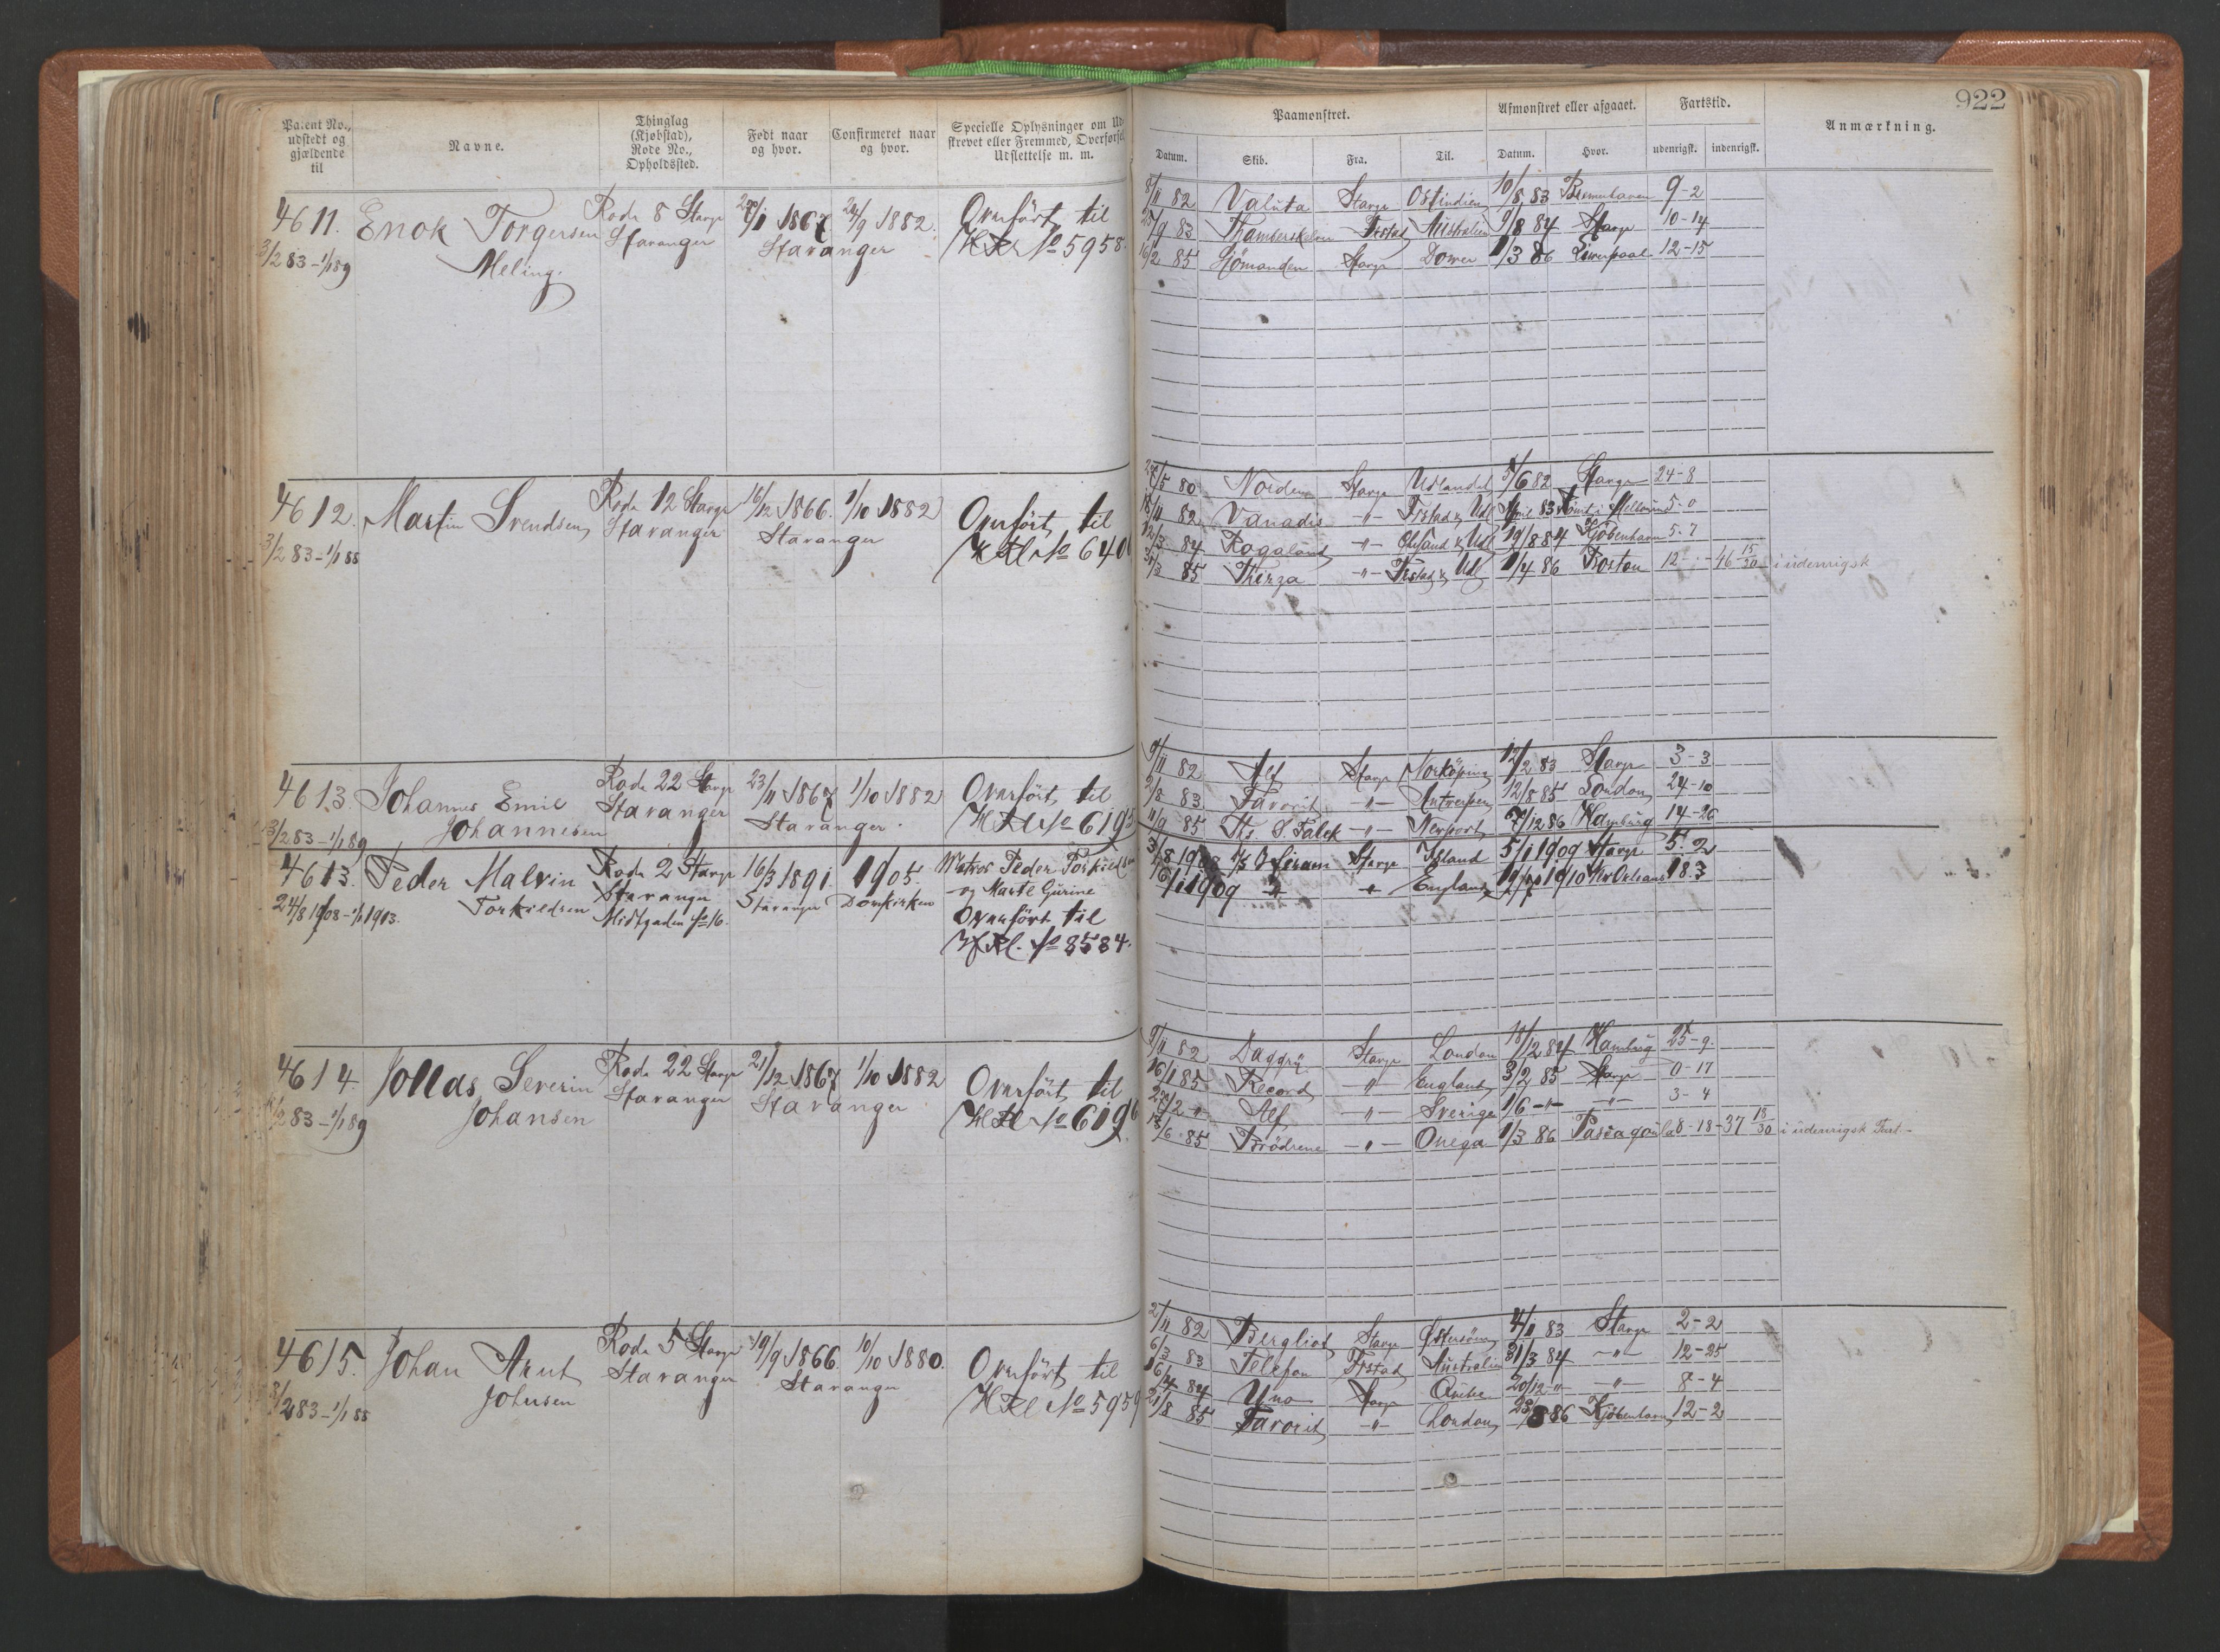 922
Patent No., udstedt og gjældende til
Navne.
Thinglag (Kjøbstad), Rode No., Opholdssted.
Født naar og hvor.
Confirmeret naar og hvor.
Specielle Oplysninger om Ud-
skrevet eller Fremmed, Overførsel
Udslettelse m. m.
Paamønstret.
Afmønstret eller afgaaet.
Fartstid.
Anmærkning.
Datum. Skib. Fra. Til. Datum. Hvor. udenrigsk. indenrigsk.
4611. Enok Torgersen Rode 8 Stavgr 1867 24/9 1882. Overført til
3/2 83 - 1/1 89 Meling. Stavanger Stavanger No 5958.
8/11 82 Valuta Stavgr Ostindien 10/8 83 Bremerhaven 9-2
83 Fr.stad Australien 9/8 84 Stavgr 10-14
16/2 85 Sjömanden Stavgr Dover 1/3 86 Liverpool 12-15
4612. Martin Svendsen Rode 12 Stavgr 16/12 1866. 1/10 1882 Overført til
3/2 83 - 1/1 88 Stavanger Stavanger No 640
80 Norden Stavgr Udlandet 5/6 82 Stavgr 24-8
82 Vanadis -"- Fr.stad & Udl April 83 5-0
12/3 84 Rogaland -"- & Udl 19/8 84 Kjöbenhavn 5-7
31/3 85 Thirza -"- Fr.stad & Udl 1/4 86 Boston 12 - 46 15/30 i udenrigsk
4613. Johannes Emil Rode 22 Stavgr 23/11 1867 1/10 1882 Overført til
3/2 83 - 1/1 89 Johannesen Stavanger Stavanger. No 619
9/11 82 Alf Stavgr Norköping 12/2 83 Stavgr 3-3
2/8 83 Favorit -"- Antwerpen 12/8 85 London 24-10
11/9 85 Ths. S. Falck -"- Newport 7/12 86 Hamburg 14-26
4613. Peder Malvin Rode 2 Stavgr 16/3 1891. 1905. Matros Peder Torkildsen
24/8 1908 - 1/1 1913. Torkildsen Stavanger Stavanger Domkirken og Marte Gurine
Midtgaden No 16. Overført til
No 8584.
1908 Stavgr Island 5/1 1909 Stavgr 5. 2
1909 " England 1910 Nw Orleans 18.3
4614. Jonas Severin Rode 22 Stavgr 21/12 1867 1/10 1882 Overført til
83 - 1/1 89 Johansen Stavanger Stavanger No 619
9/11 82 Daggry Stavgr London 18/12 84 Hamburg 25-9.
16/1 85 Record " England 3/2 85 Stavgr 0-17
Alf -"- Sverige 1/6 -"- -"- 3-4
85 Brödrene -"- Onega 1/3 86 Pascagoula 8-18 - 37 18/30 i udenrigsk Fart.
4615. Johan Arnt Rode 5 Stavgr 19/9 1866. 10/10 1880. Overført til
3/2 83 - 1/1 88 Johnsen Stavanger Stavanger No 5959
2/11 82 Bergliot Stavgr Østersöen 4/1 83 Stavgr 2-2
6/3 83 Telefon Fr.stad Australien 31/3 84 -"- 12-25
16/4 84 Uno Stavgr 20/12 -"- -"- 8-4
21/8 85 Favorit -"- London 86 Kjöbenhavn 12-2